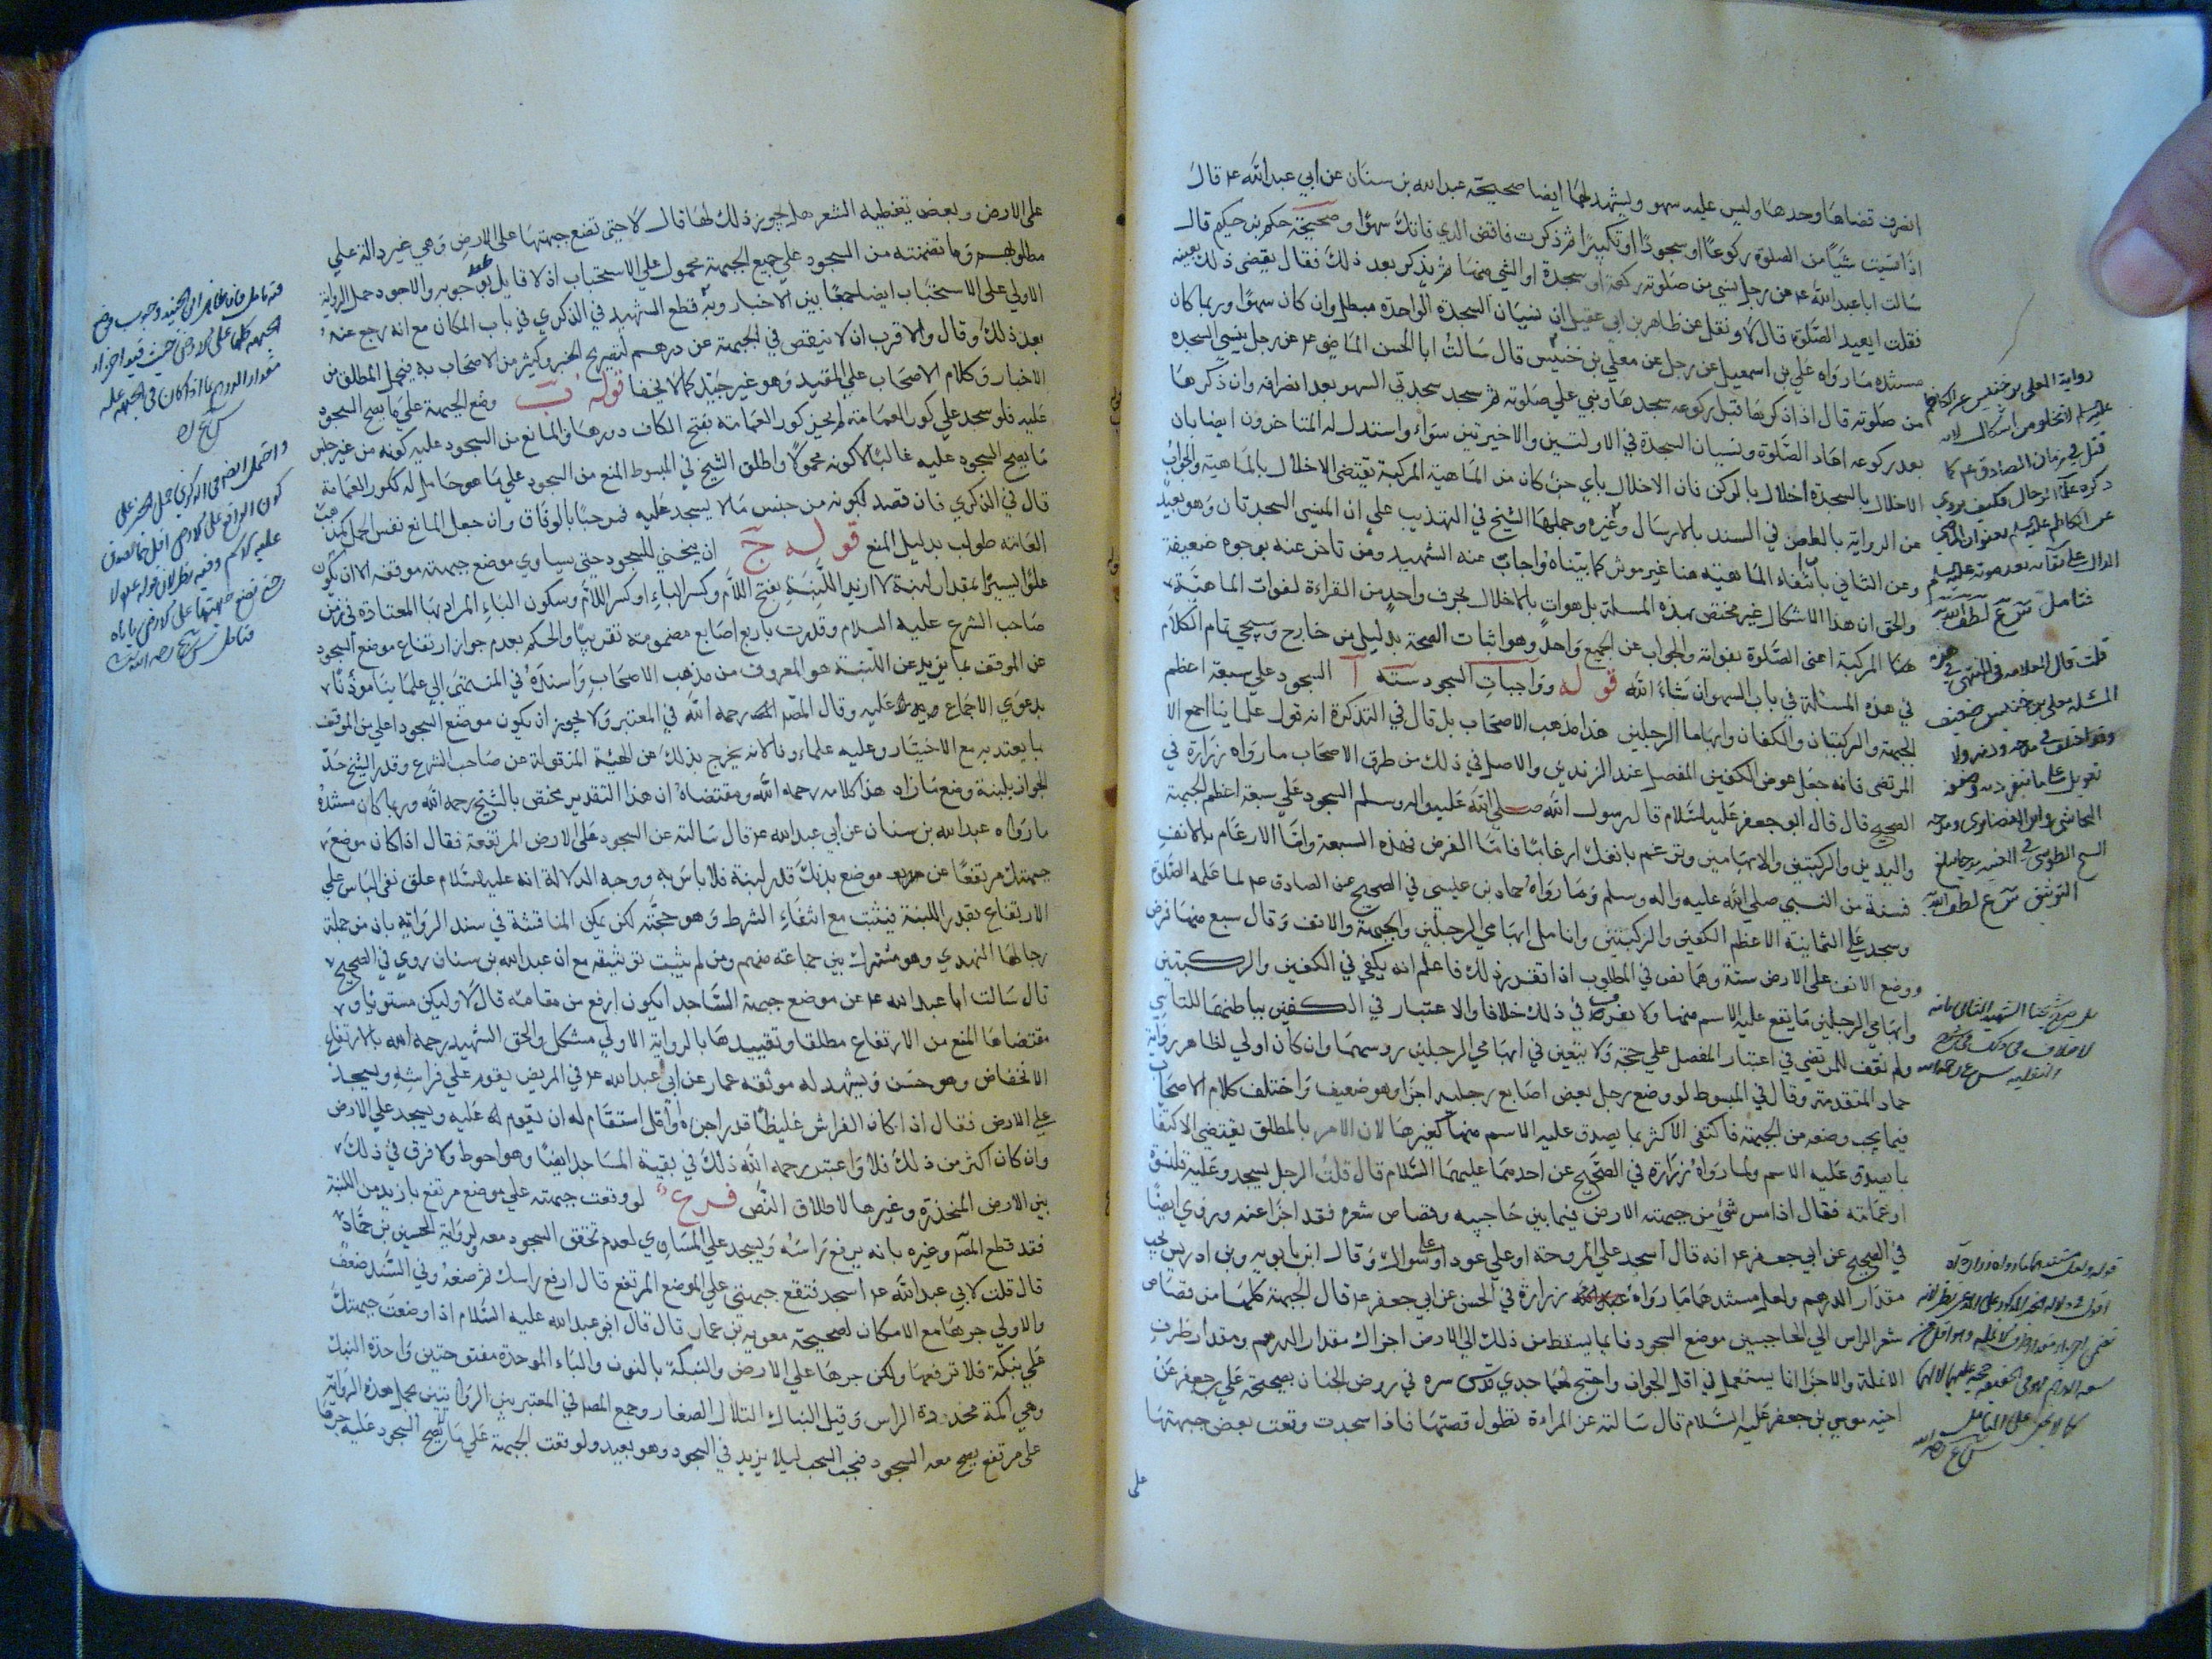 انصرف قضاها وحدها وليس عليه سهو ويشهد لهما ايضا صحيحة عبد الله بن سنان عن ابي عبد الله ع قال
اذا نسيت شيئًا من الصلوة ركوعًا او سجودًا او تكبيرًا ثم ذكرت فاقض الذي فاتك سهوًا وصحيحة حكم بن حكيم قال
سالت ابا عبد الله ع عن رجل ينسي من صلوته ركعة او سجدة او الشي منها ثم يذكر بعد ذلك فقال يقضي ذلك بعينه
فقلت ايعيد الصلوة قال لا ونقل عن ظاهر بن ابي عقيل ان نسيان السجدة الواحدة مبطل وان كان سهوًا وربما كان
مستنده ما رواه علي بن اسمعيل عن رجل عن معلي بن خنيس قال سالت ابا الحسن الماضي ع عن رجل ينسي السجدة
من صلوته قال اذا ذكرها قبل ركوعه سجدها وبني علي صلوته ثم سجد سجدتي السهو بعد انصرافه وان ذكرها
بعد ركوعه اعاد الصلوة ونسيان السجدة في الاولتين والاخيرتين سواء واستدل له المتاخرون ايضا بان
الاخلال بالسجدة اخلال بالركن فان الاخلال باي جزء كان من الماهية المركبة يقتضي الاخلال بالماهية والجواب
عن الرواية بالطعن في السند بالارسال وغيره وحملها الشيخ في التهذيب علي ان المنسي السجدتان وهو بعيد
وعن الثاني بان انتفاء الماهية هنا غير موثر كما بيناه واجاب عنه الشهيد ومن تاخر عنه بوجوه ضعيفة
والحق ان هذا الاشكال غير مختص بهذه المسئلة بل هو ات بالاخلال بحرف واحد من القراءة لفوات الماهية
هنا المركبة اعني الصلوة بفواته والجواب عن الجميع واحد وهو اثبات الصحة بدليل من خارج وسيجي تمام الكلام
في هذه المسئلة في باب السهو ان شاء الله قوله وواجبات السجود ستة آ السجود علي سبعة اعظم
الجبهة والركبتان والكفان وابهاما الرجلين هذا مذهب الاصحاب بل قال في التذكرة انه قول علمائنا اجمع الا
المرتضي فانه جعل عوض الكفين المفصل عند الزندين والاصل في ذلك من طرق الاصحاب ما رواه زرارة في
الصحيح قال قال ابو جعفر عليه السلام قال رسول الله صلي الله عليه واله وسلم السجود علي سبعة اعظم الجبهة
واليدين والركبتين والابهامين وترغم بانفك ارغامًا فاما الفرض فهذه السبعة واما الارغام بالانف
فسنة من النبي صلي الله عليه واله وسلم وما رواه حماد بن عيسي في الصحيح عن الصادق ع لما علمه الصلوة
وسجد علي الثمانية الاعظم الكفين والركبتين وانامل ابهامي الرجلين والجبهة والانف وقال سبع منها فرض
ووضع الانف علي الارض سنة وهما نص في المطلوب اذا تقرر ذلك فاعلم انه يكفي في الكفين والركبتين
وابهامي الرجلين ما يقع عليه الاسم منها ولا نعرف في ذلك خلافا والاعتبار في الكفين بباطنهما للتاسي
ولم نقف للمرتضي في اعتبار المفصل علي حجة ولا يتعين في ابهامي الرجلين روسهما وان كان اولي لظاهر رواية
حماد المتقدمة وقال في المبسوط لو وضع رجل بعض اصابع رجليه اجزا وهو ضعيف واختلف كلام الاصحاب
فيما يجب وضعه من الجبهة فاكتفي الاكثر بما يصدق عليه الاسم منها كغيرها لان الامر بالمطلق يقتضي الاكتفا
بما يصدق عليه الاسم ولما رواه زرارة في الصحيح عن احدهما عليهما السلام قال قلت الرجل يسجد وعليه قلنسوة
او عمامة فقال اذا مس شي من جبهته الارض فيما بين حاجبيه وقصاص شعره فقد اجزا عنه وروي ايضًا
في الصحيح عن ابي جعفر ع انه قال اسجد علي المروحة او علي عود او سواك وقال ابن بابويه وبن ادريس يجب
مقدار الدرهم ولعل مستندهما ما رواه زرارة في الحسن عن ابي جعفر ع قال الجبهة كلها من قصاص
شعر الراس الي الحاجبين موضع السجود فايما يسقط من ذلك الي الارض اجزاك مقدار الدرهم ومقدار طرف
الانملة والاجزا انما يستعمل في اقل الجواز واحتج لهما جدي قدس سره في روض الجنان بصحيحة علي بن جعفر عن
اخيه موسي بن جعفر عليه السلام قال سالته عن المراءة تطول قصتها فاذا سجدت وقعت بعض جبهتها
علي
رواية المعلي بن خنيس عن الكاظم
عليه السلم لا تخلو من اشكال لانه
قتل في زمان الصادق ع كما
ذكره علما الرجال فكيف يروي
فتامل ش ع لطف الله
قلت قال العلامه في المنتهي في هذه
المسئله معلي بن خنيس ضعيف
التوثيق ش ع لطف الله
علي الارض وبعض يغطيه الشعر هل يجوز ذلك لها قال لا حتي تضع جبهتها علي الارض وهي غير دالة علي
مطلوبهم وما تضمنته من السجود علي جميع الجبهة محمول علي الاستحباب اذ لا قايل بوجوبه والاجود حمل الرواية
الاولي علي الاستحباب ايضا جمعًا بين الاخبار وبه قطع الشهيد في الذكري في باب المكان مع انه رجع عنه
بعد ذلك وقال والاقرب ان لا ينقص في الجبهة عن درهم لتصريح الخبر وكثير من الاصحاب به فيحمل المطلق من
الاخبار وكلام الاصحاب علي المقيد وهو غير جيد كما لا يخفا قوله ب وضع الجبهة علي ما يصح السجود
عليه فلو سجد علي كور العمامة لم يجز كور العمامة بفتح الكاف دورها والمانع من السجود عليه كونه من غير جنس
ما يصح السجود عليه غالبًا لا كونه محمولًا واطلق الشيخ في المبسوط المنع من السجود علي ما هو حامل له ككور العمامة
قال في الذكري فان قصد لكونه من جنس ما لا يسجد عليه فمرحبًا بالوفاق وان جعل المانع نفس الحمل كمذهب
العامة طولب بدليل المنع قوله ج ان ينحني للسجود حتي يساوي موضع جبهته موقفه الا ان يكون
علوًا يسيرًا بمقدار لبنة لا ازيد اللبنة بفتح اللام وكسر الباء او كسر اللام وسكون الباء المراد بها المعتادة في زمن
صاحب الشرع عليه السلام وقدرت باربع اصابع مضمومة تقريبًا والحكم بعدم جواز ارتفاع موضع السجود
عن الموقف بما يزيد عن اللبنة هو المعروف من مذهب الاصحاب واسنده في المنتهي الي علمائنا موذنًا
بدعوي الاجماع عليه وقال المصنف رحمه الله في المعتبر ولا يجوز ان يكون موضع السجود اعلي من الموقف
بما يعتد به مع الاختيار وعليه علماءونا لانه يخرج بذلك عن الهيئة المنقولة عن صاحب الشرع وقدر الشيخ حد
الجواز بلبنة ومنع ما زاد هذا كلامه رحمه الله ومقتضاه ان هذا التقدير مختص بالشيخ رحمه الله وربما كان مستنده
ما رواه عبد الله بن سنان عن ابي عبد الله ع قال سالته عن السجود علي الارض المرتفعة فقال اذا كان موضع
جبهتك مرتفعًا عن موضع بدنك قدر لبنة فلا باس به ووجه الدلالة انه عليه السلام علق نفي الباس علي
الارتفاع بقدر اللبنة فيثبت مع انتفاء الشرط وهو حجة لكن يمكن المناقشة في سند الرواية بان من جملة
رجالها النهدي وهو مشترك بين جماعة منهم من لم يثبت توثيقه مع ان عبد الله بن سنان روي في الصحيح
قال سالت ابا عبد الله ع عن موضع جبهة الساجد ايكون ارفع من مقامه قال لا وليكن مستويًا و
مقتضاها المنع من الارتفاع مطلقا وتقييدها بالرواية الاولي مشكل والحق الشهيد رحمه الله بالارتفاع
الانخفاض وهو حسن ويشهد له موثقة عمار عن ابي عبد الله ع في المريض يقوم علي فراشه ويسجد
علي الارض فقال اذا كان الفراش غليظًا قدر اجرة او اقل استقام له ان يقوم عليه ويسجد علي الارض
وان كان اكثر من ذلك فلا واعتبر رحمه الله ذلك في بقية المساجد ايضًا وهو احوط ولا فرق في ذلك
بين الارض المنحدرة وغيرها لاطلاق النص فرع لو وقعت جبهته علي موضع مرتفع بازيد من اللبنة
فقد قطع المصنف وغيره بانه يرفع راسه ويسجد علي المساوي لعدم تحقق السجود معه ولرواية الحسين بن حماد
قال قلت لابي عبد الله ع اسجد فتقع جبهتي علي الموضع المرتفع قال ارفع راسك ثم ضعه وفي السند ضعف
والاولي جرها مع الامكان لصحيحة معوية بن عمار قال قال ابو عبد الله عليه السلام اذا وضعت جبهتك
علي نبكة فلا ترفعها ولكن جرها علي الارض والنبكة بالنون والباء الموحدة مفتوحتين واحدة النبك
وهي اكمة محددة الراس وقيل النباك التلال الصغار وجمع المصنف في المعتبر بين الروايتين بحمل هذه الرواية
علي مرتفع يصح معه السجود فيجب السحب ليلا يزيد في السجود وهو بعيد ولو وقعت الجبهة علي ما لا يصح السجود عليه جرها